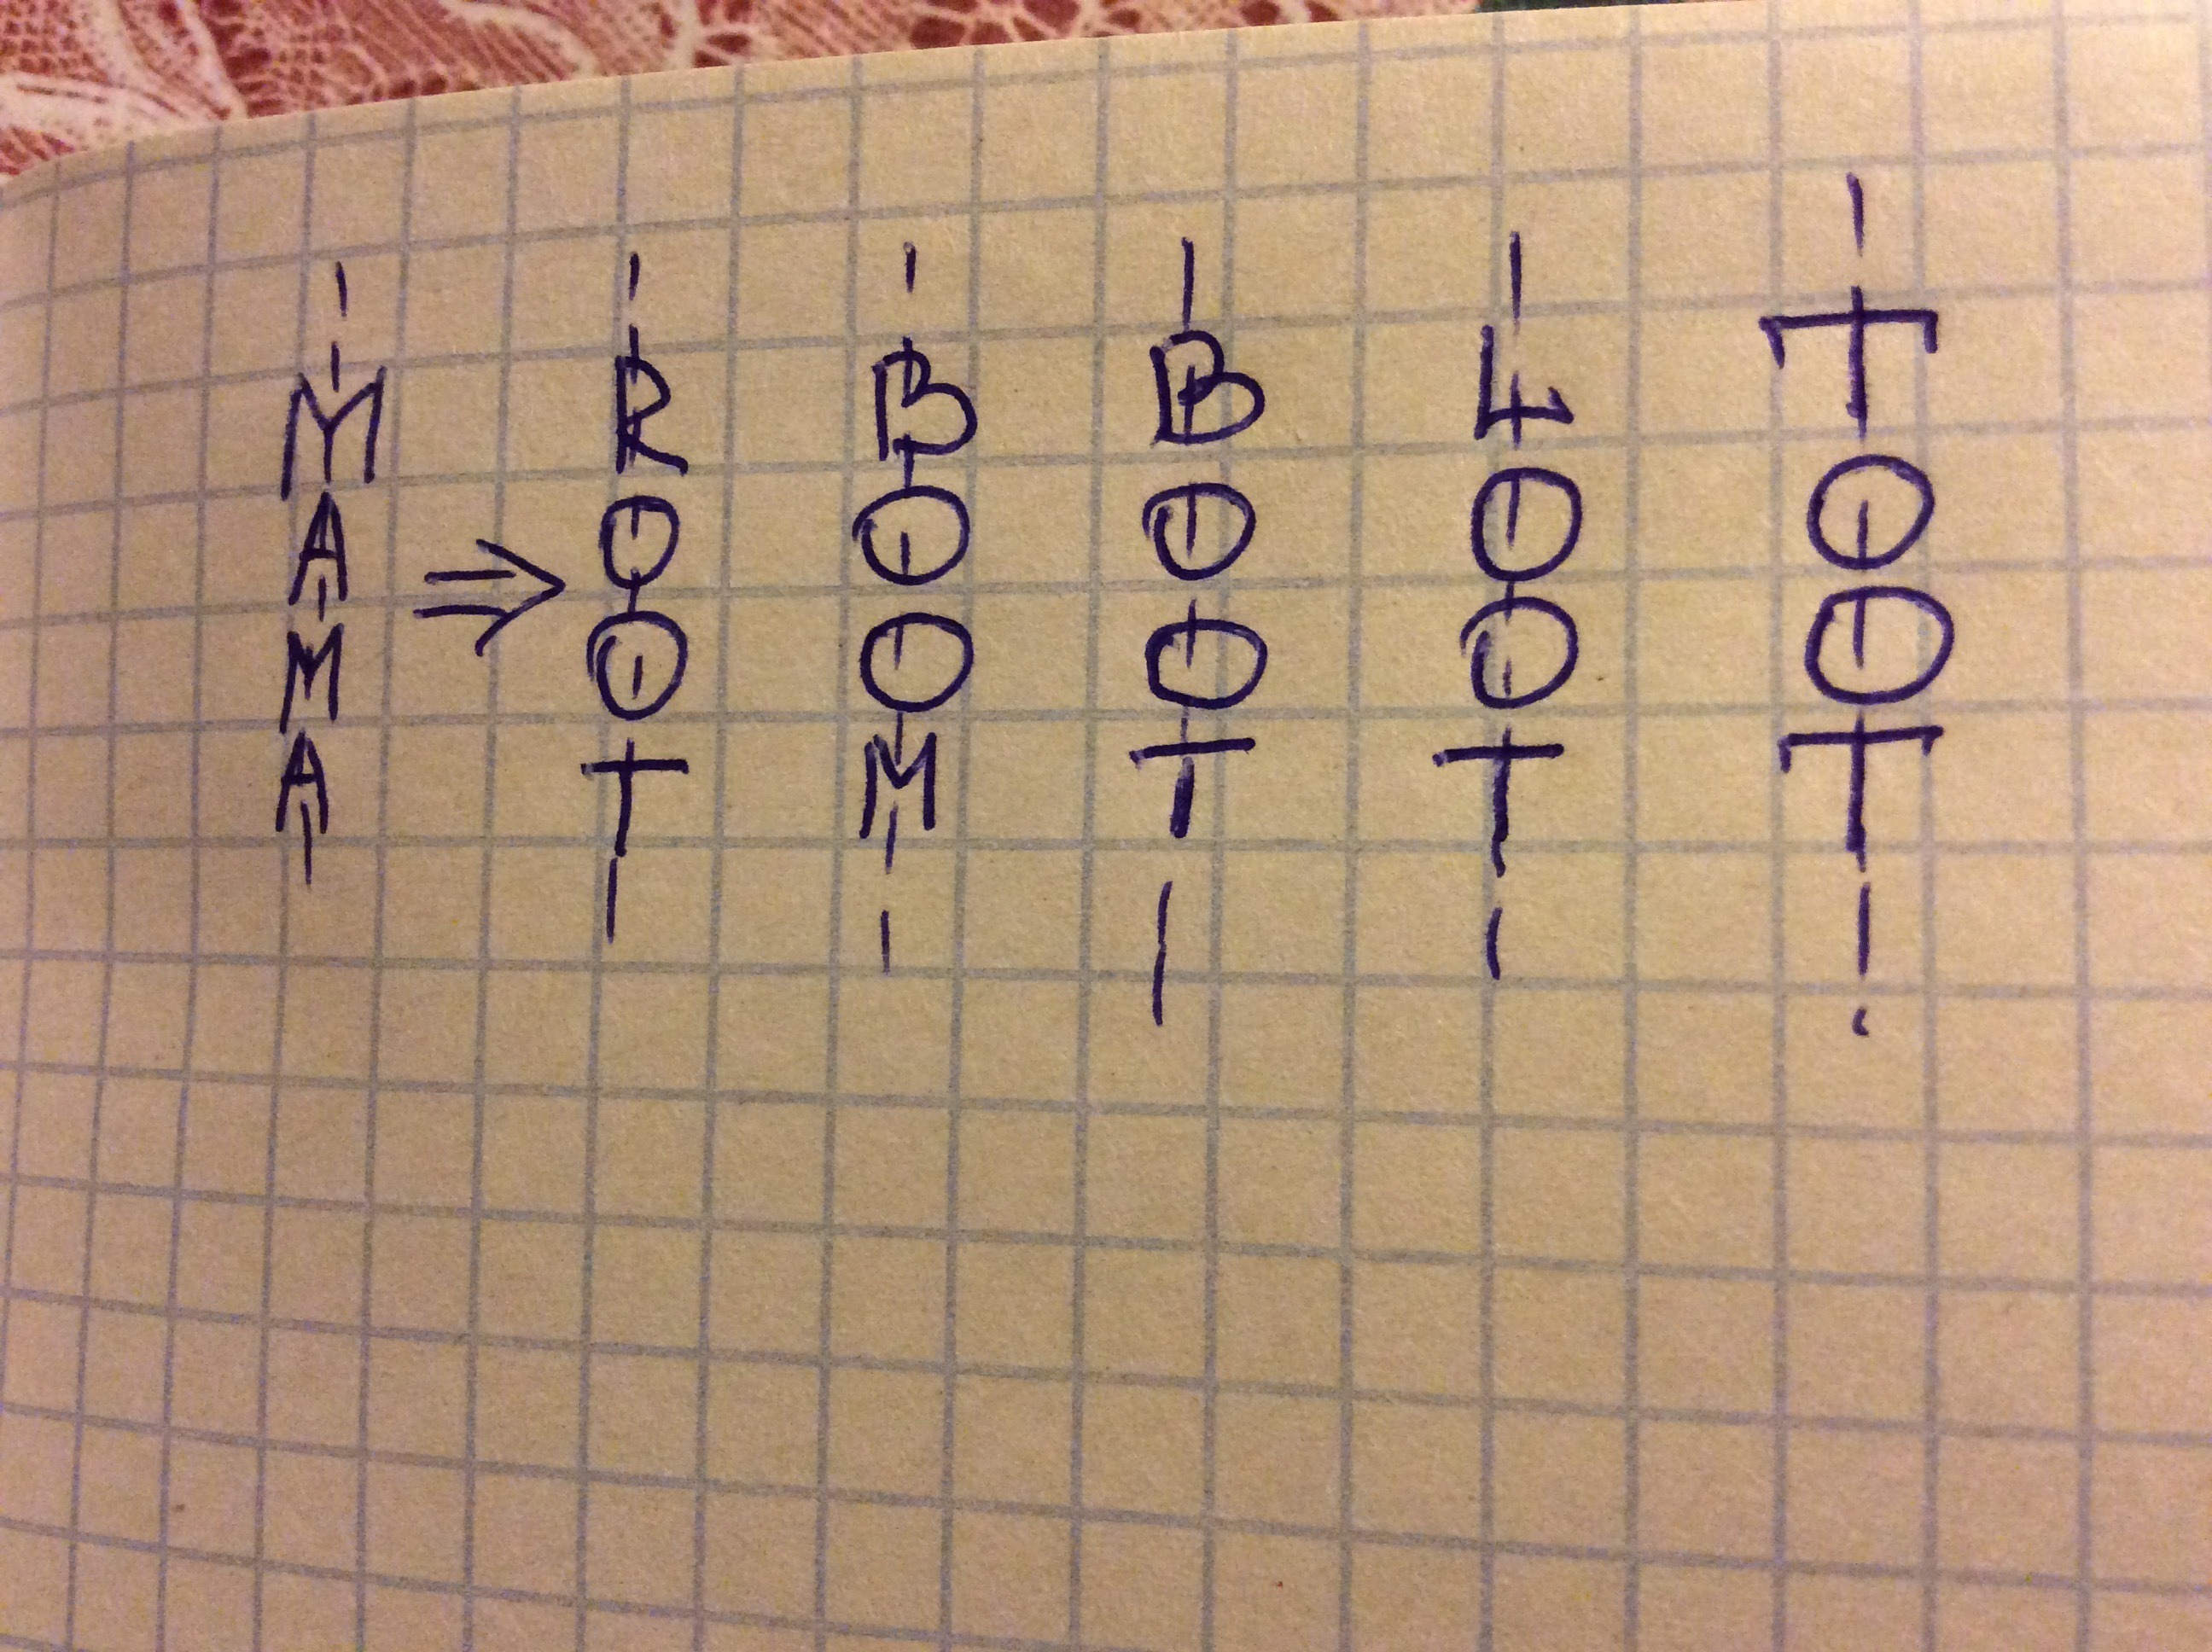 MAMA
⇒
ROOT
BOOM
BOOT
LOOT
TOOT